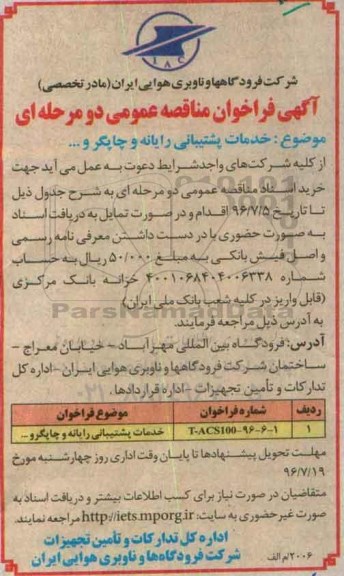 IAC
شرکت فرودگاهها و ناوبری هوایی ایران (مادر تخصصی)
آگهی فراخوان مناقصه عمومی دو مرحله ای
موضوع: خدمات پشتیبانی رایانه و چاپگر و ...
از کلیه شرکت‌های واجدشرایط دعوت به عمل می آید جهت
خرید اسناد مناقصه عمومی دو مرحله ای به شرح جدول ذیل
تا تاریخ ۹۶/۷/۵ اقدام و در صورت تمایل به دریافت اسناد
به صورت حضوری با در دست داشتن معرفی نامه رسمی
و اصل فیش بانکی به مبلغ ۵۰/۰۰۰ ریال به حساب
شماره ۴۰۰۱۰۶۸۴۰۴۰۰۶۳۳۸ خزانه بانک مرکزی
(قابل واریز در کلیه شعب بانک ملی ایران)
به آدرس ذیل مراجعه فرمایند.
ParsNamadData
آدرس: فرودگاه بین المللی مهرآباد - خیابان معراج -
ساختمان شرکت فرودگاهها و ناوبری هوایی ایران - اداره کل
تدارکات و تأمین تجهیزات - اداره قراردادها.
ردیف شماره فراخوان موضوع فراخوان
۱ T-ACS100-۹۶-۶-۱ خدمات پشتیبانی رایانه و چاپگرو ...
مهلت تحویل پیشنهادها تا پایان وقت اداری روز چهارشنبه مورخ
۹۶/۷/۱۹
متقاضیان در صورت نیاز برای کسب اطلاعات بیشتر و دریافت اسناد به
صورت غیرحضوری به سایت: http://iets.mporg.ir مراجعه نمایند.
اداره کل تدارکات و تأمین تجهیزات
شرکت فرودگاه‌ها و ناوبری هوایی ایران
۲۰۰۶/م الف